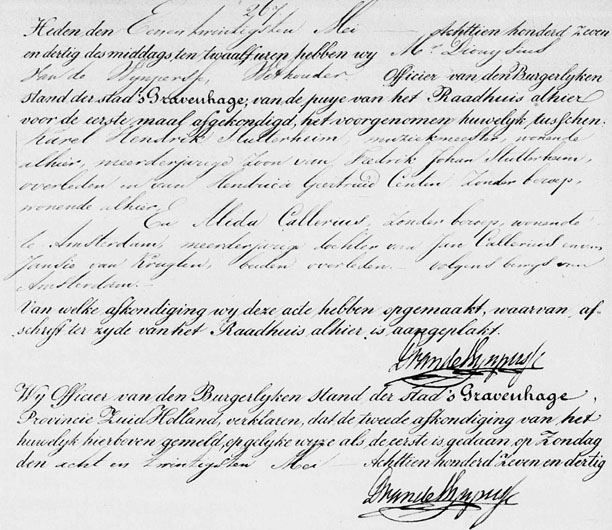 267
Heden den Eenentwintigsten Mei — Achttien honderd zeven
en dertig des middags, ten twaalf uren hebben wy Mr. Dionysius
van de Wynpersse, Wethouder, Officier van den Burgerlyken
stand der stad 's Gravenhage; van de puye van het Raadhuis alhier
voor de eerste maal afgekondigd, het voorgenomen huwelyk tusschen:
Karel Hendrik Stutterheim, muziekmeester, wonende
alhier, meerderjarige Zoon van Fredrik Johan Stutterheim,
overleden en van Hendrica Geertruid Centen Zonder beroep,
wonende alhier
En Alida Callerius, zonder beroep, wonende
te Amsterdam, meerderjarige dochter van Jan Callerius en van
Jansje van Kruyten, beiden overleden — volgens bewys van
Amsterdam.
Van welke afkondiging wy deze acte hebben opgemaakt, waarvan af-
schrift ter zyde van het Raadhuis alhier is aangeplakt.
DvandeWynpersse
Wy Officier van den Burgerlyken stand der stad 's Gravenhage,
Provincie Zuid Holland, verklaren, dat de tweede afkondiging van het
huwelyk hierboven gemeld, op gelyke wyze als de eerste is gedaan, op Zondag
den acht en twintigsten Mei — Achttien honderd zeven en dertig
DvandeWynpersse